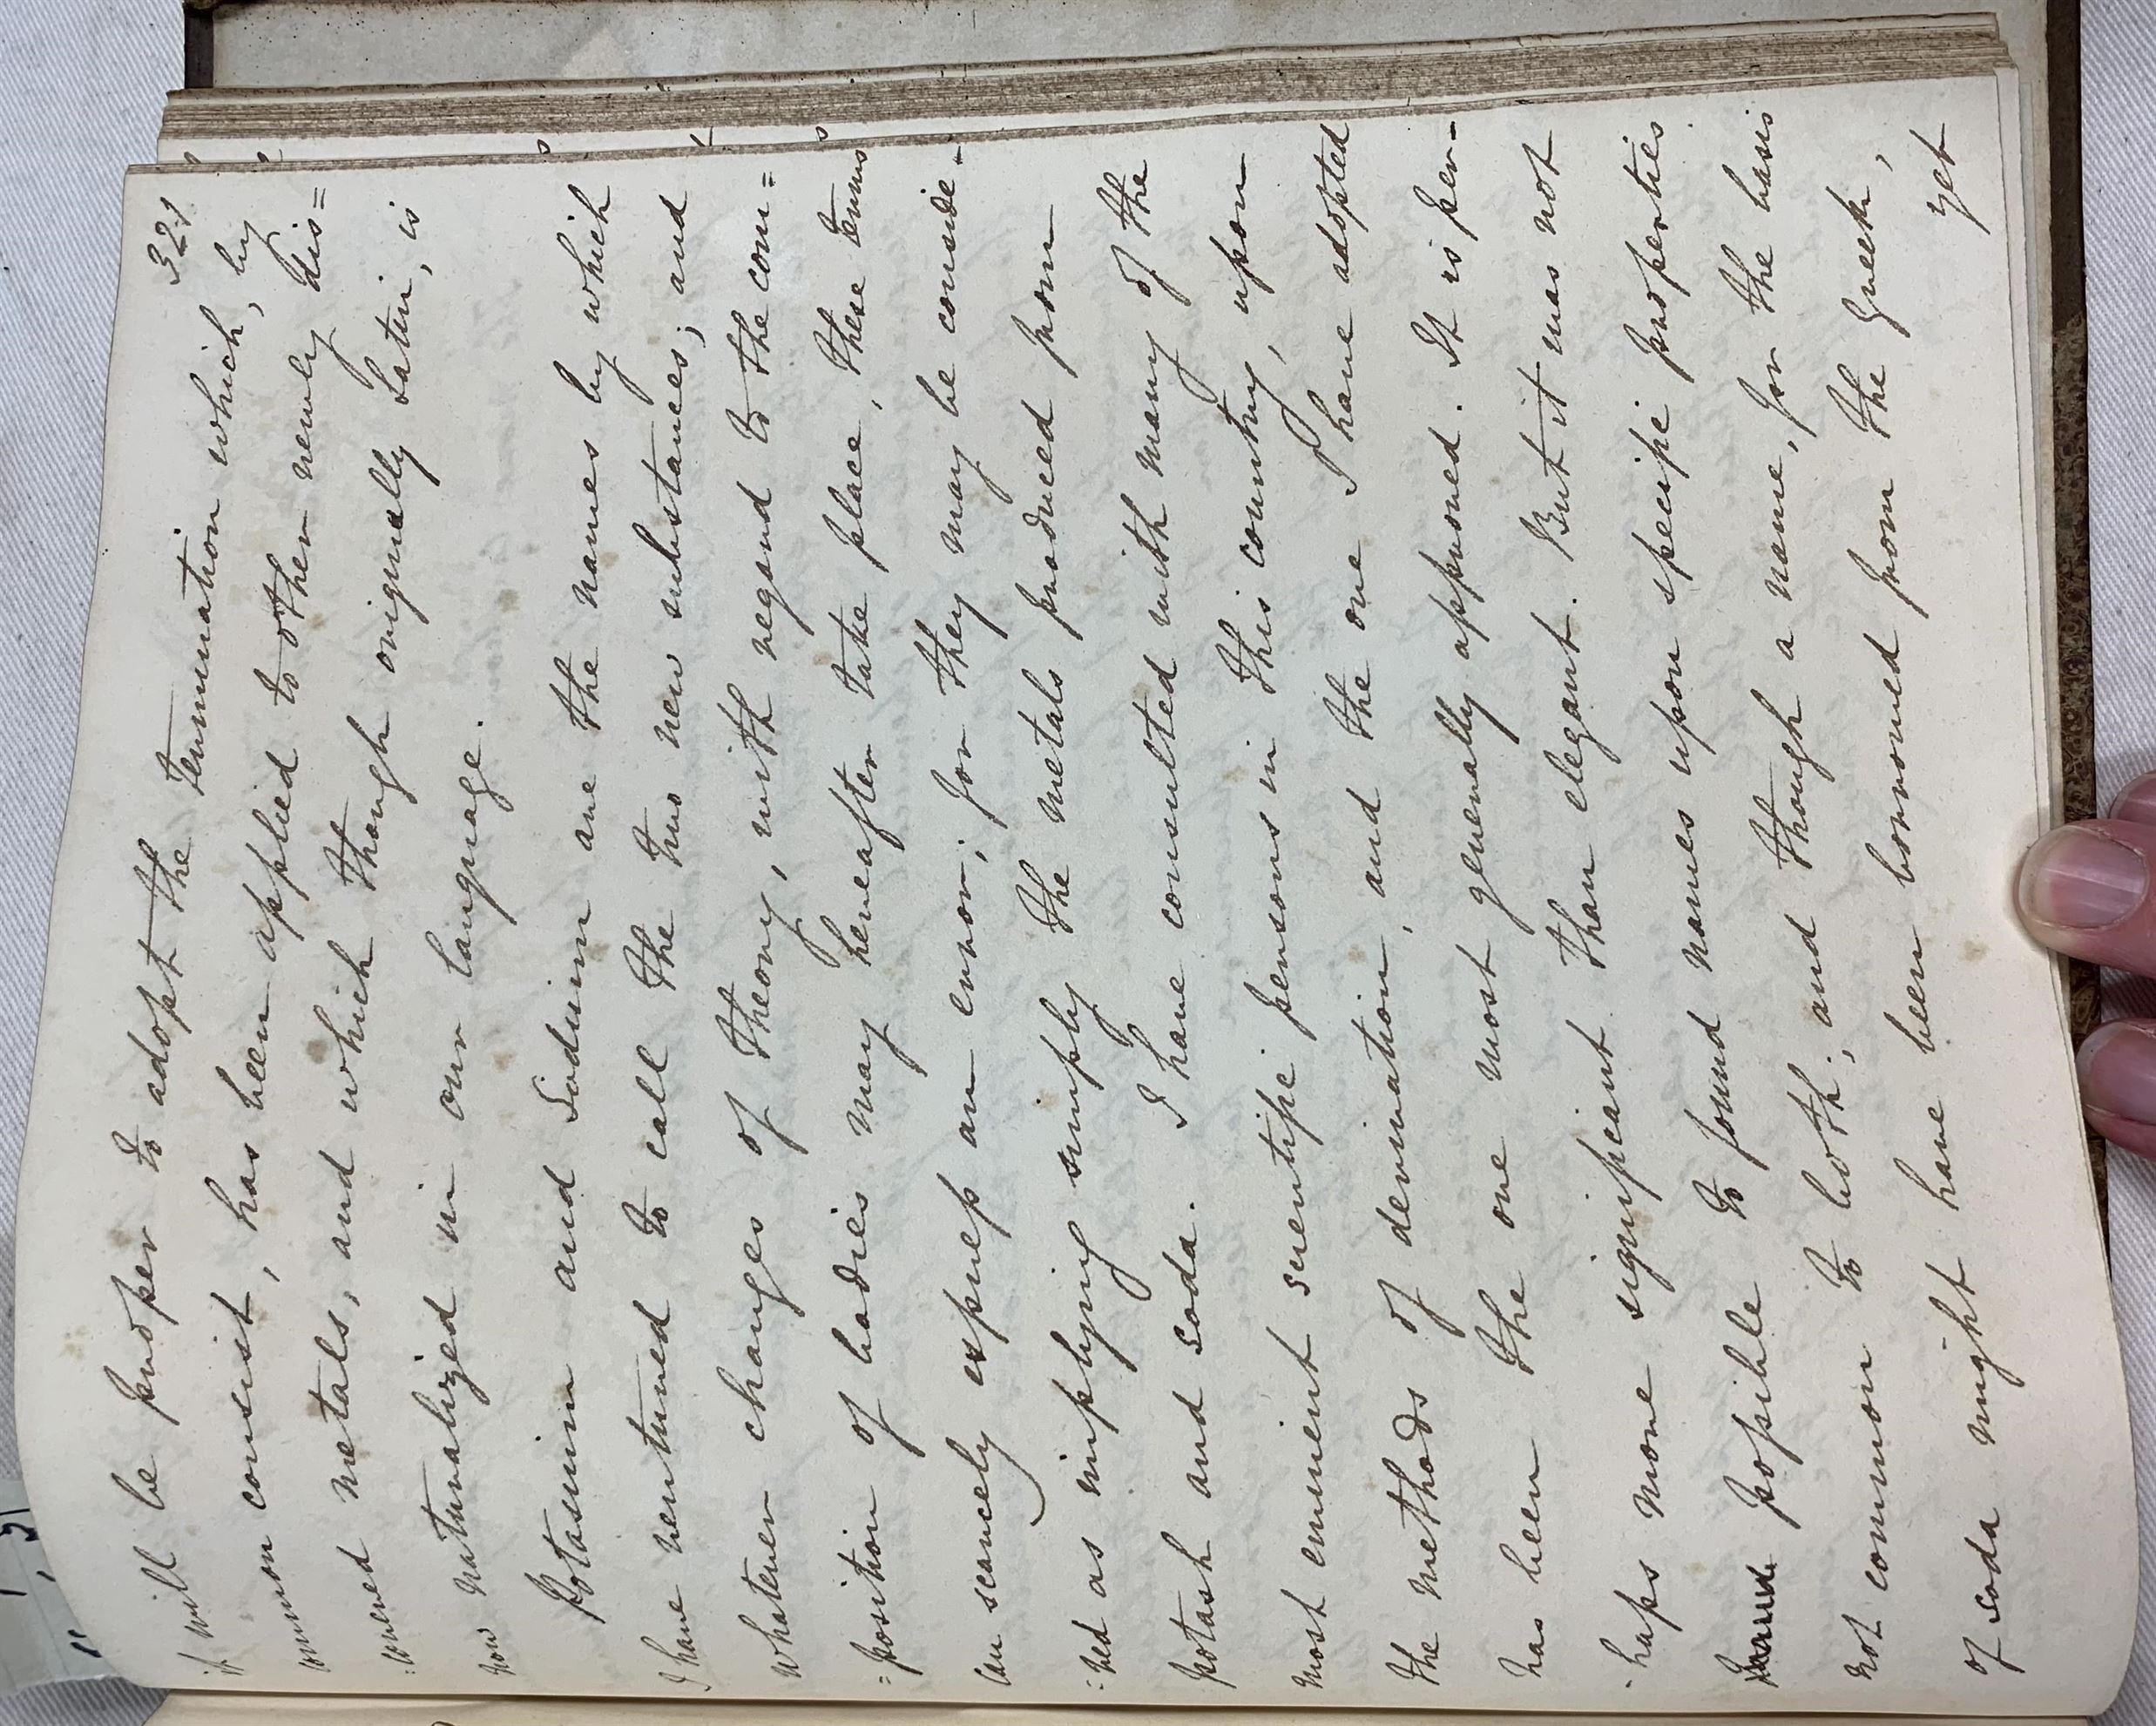 321
it will be proper to adopt the termination which, by
common consent, has been applied to other newly dis=
:covered metals, and which though originally Latin, is
now naturalized in our language.
Potasium and Sodium are the names by which
I have ventured to call the two new substances; and
whatever changes of theory, with regard to the com=
=position of bodies may hereafter take place, these terms
can scarcely express an error; for they may be conside-
:red as implying simply the metals produced from
potash and soda. I have consulted with many of the
most eminent scientific persons in this country, upon
the methods of derivation, and the one I have adopted
has been the one most generally approved. It is per-
-haps more significant than elegant. But it was not
possible to found names upon specific properties
not common to both; and though a name, for the basis
of soda might have been borrowed from the Greek,
yet